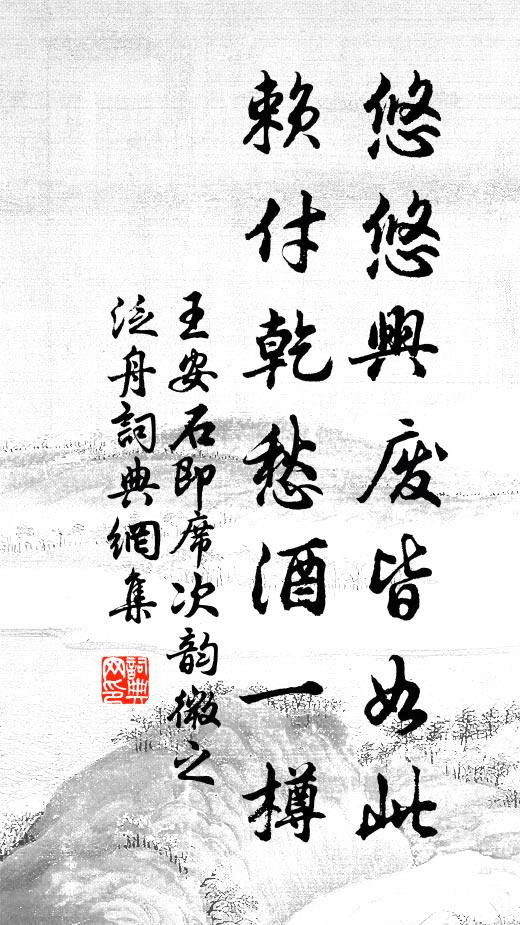 悠悠興废皆如此
赖付乾愁酒一樽
王安石即席次韵微之
泛舟詞典網集
詞典
网印